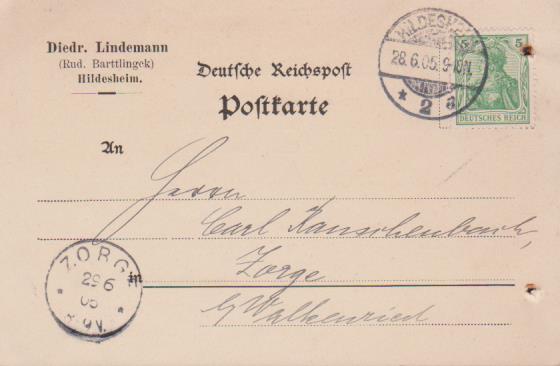 Diedr. Lindemann
(Rud. Barttlingck)
Hildesheim.
Deutsche Reichspost
Postkarte
HILDESHEIM
28.6.05. 9-10N.
* 2 a
5 5
DEUTSCHES REICH
An
Herrn
Carl Rauschenbach,
in
Zorge
b/ Walkenried
ZORGE
29 6
05